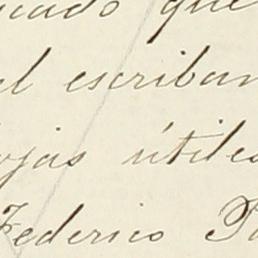 que
el escriban
ojas útiles
Federico Pa